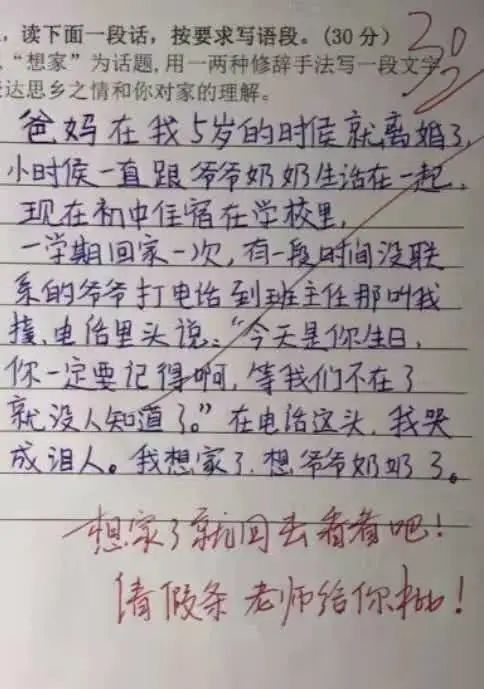 ，读下面一段话，按要求写语段。(30分)
“想家”为话题,用一两种修辞手法写一段文字
达思乡之情和你对家的理解。
30
爸妈在我5岁的时侯就离婚了,
小时侯一直跟爷爷奶奶生活在一起,
现在初中住宿在学校里,
一学期回家一次,有一段时间没联
系的爷爷打电话到班主任那叫我
接,电话里头说:“今天是你生日,
你一定要记得啊,等我们不在了
就没人知道了。”在电话这头,我哭
成泪人。我想家了,想爷爷奶奶了。
想家了就回去看看吧!
请假条老师给你批!